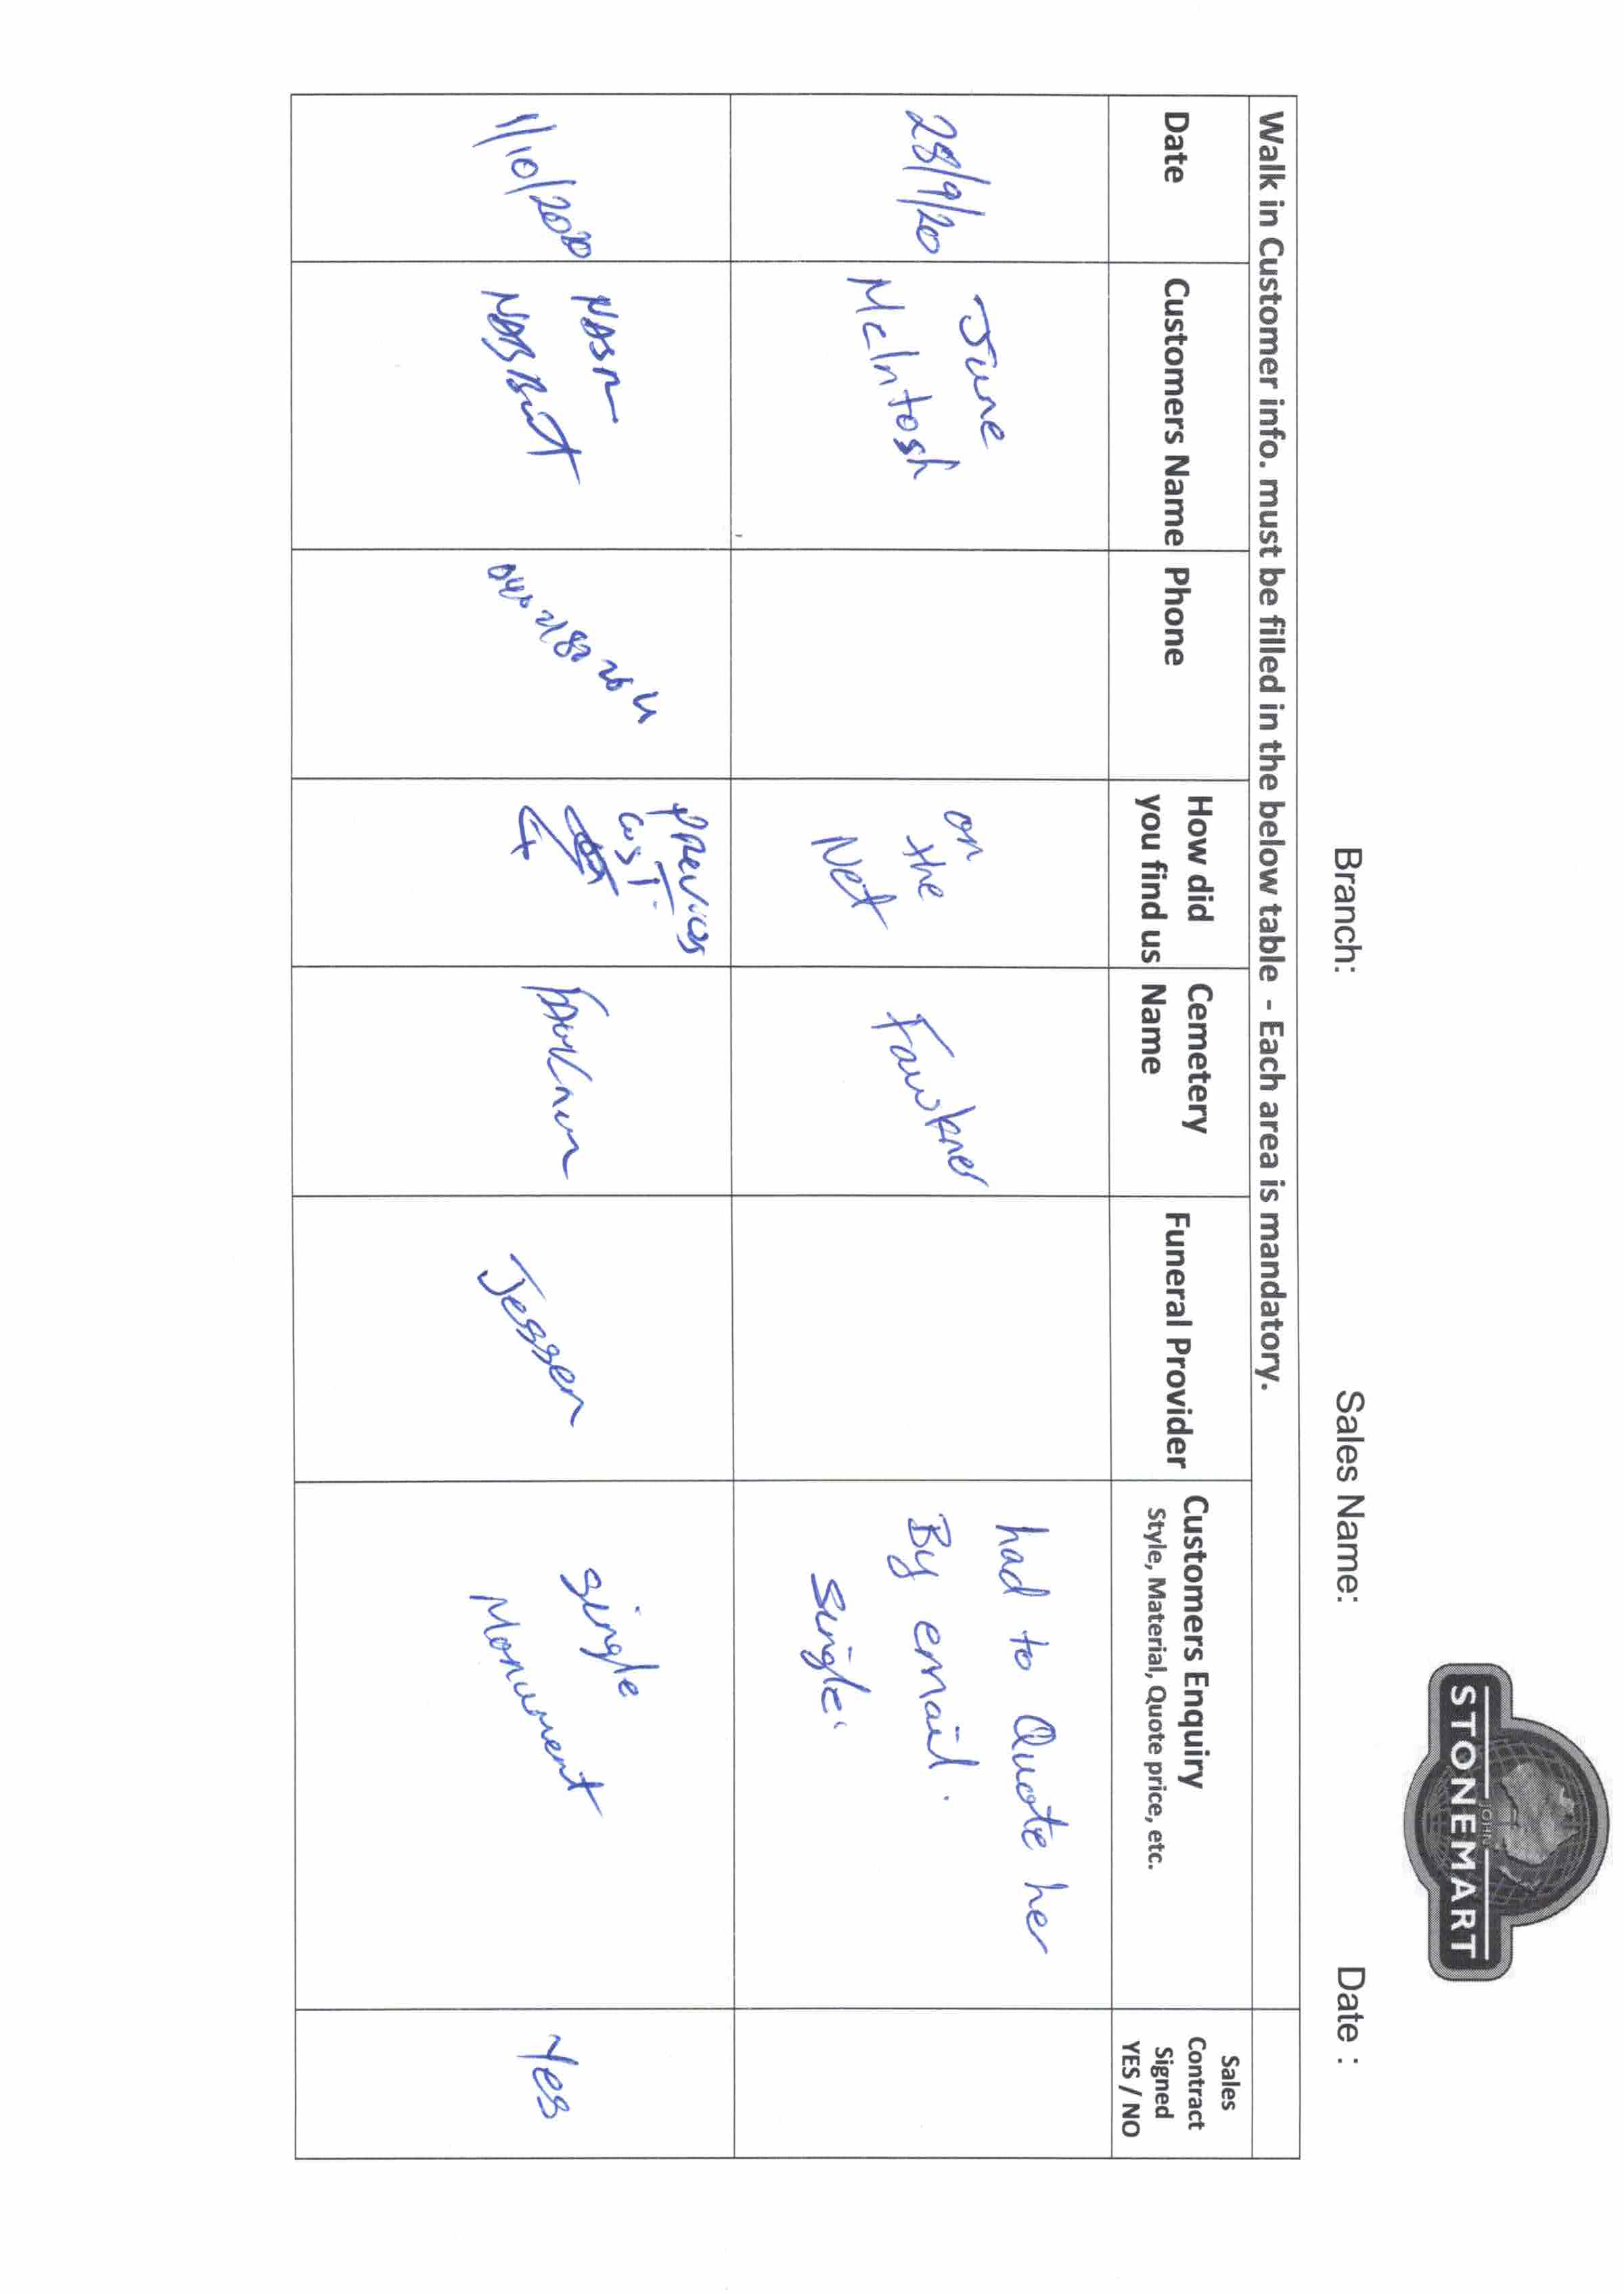 JOHN
STONEMART
Branch:
Sales Name:
Date :
Walk in Customer info. must be filled in the below table - Each area is mandatory.
Date
Customers Name
Phone
How did
you find us
Cemetery
Name
Funeral Provider
Customers Enquiry
Style, Material, Quote price, etc.
Sales
Contract
Signed
YES / NO
28/9/20
June
McIntosh
on
the
Net
Fawkner
had to Quote her
By email.
Single.
1/10/2020
previous
cust.
Jessen
Single
Monument
Yes